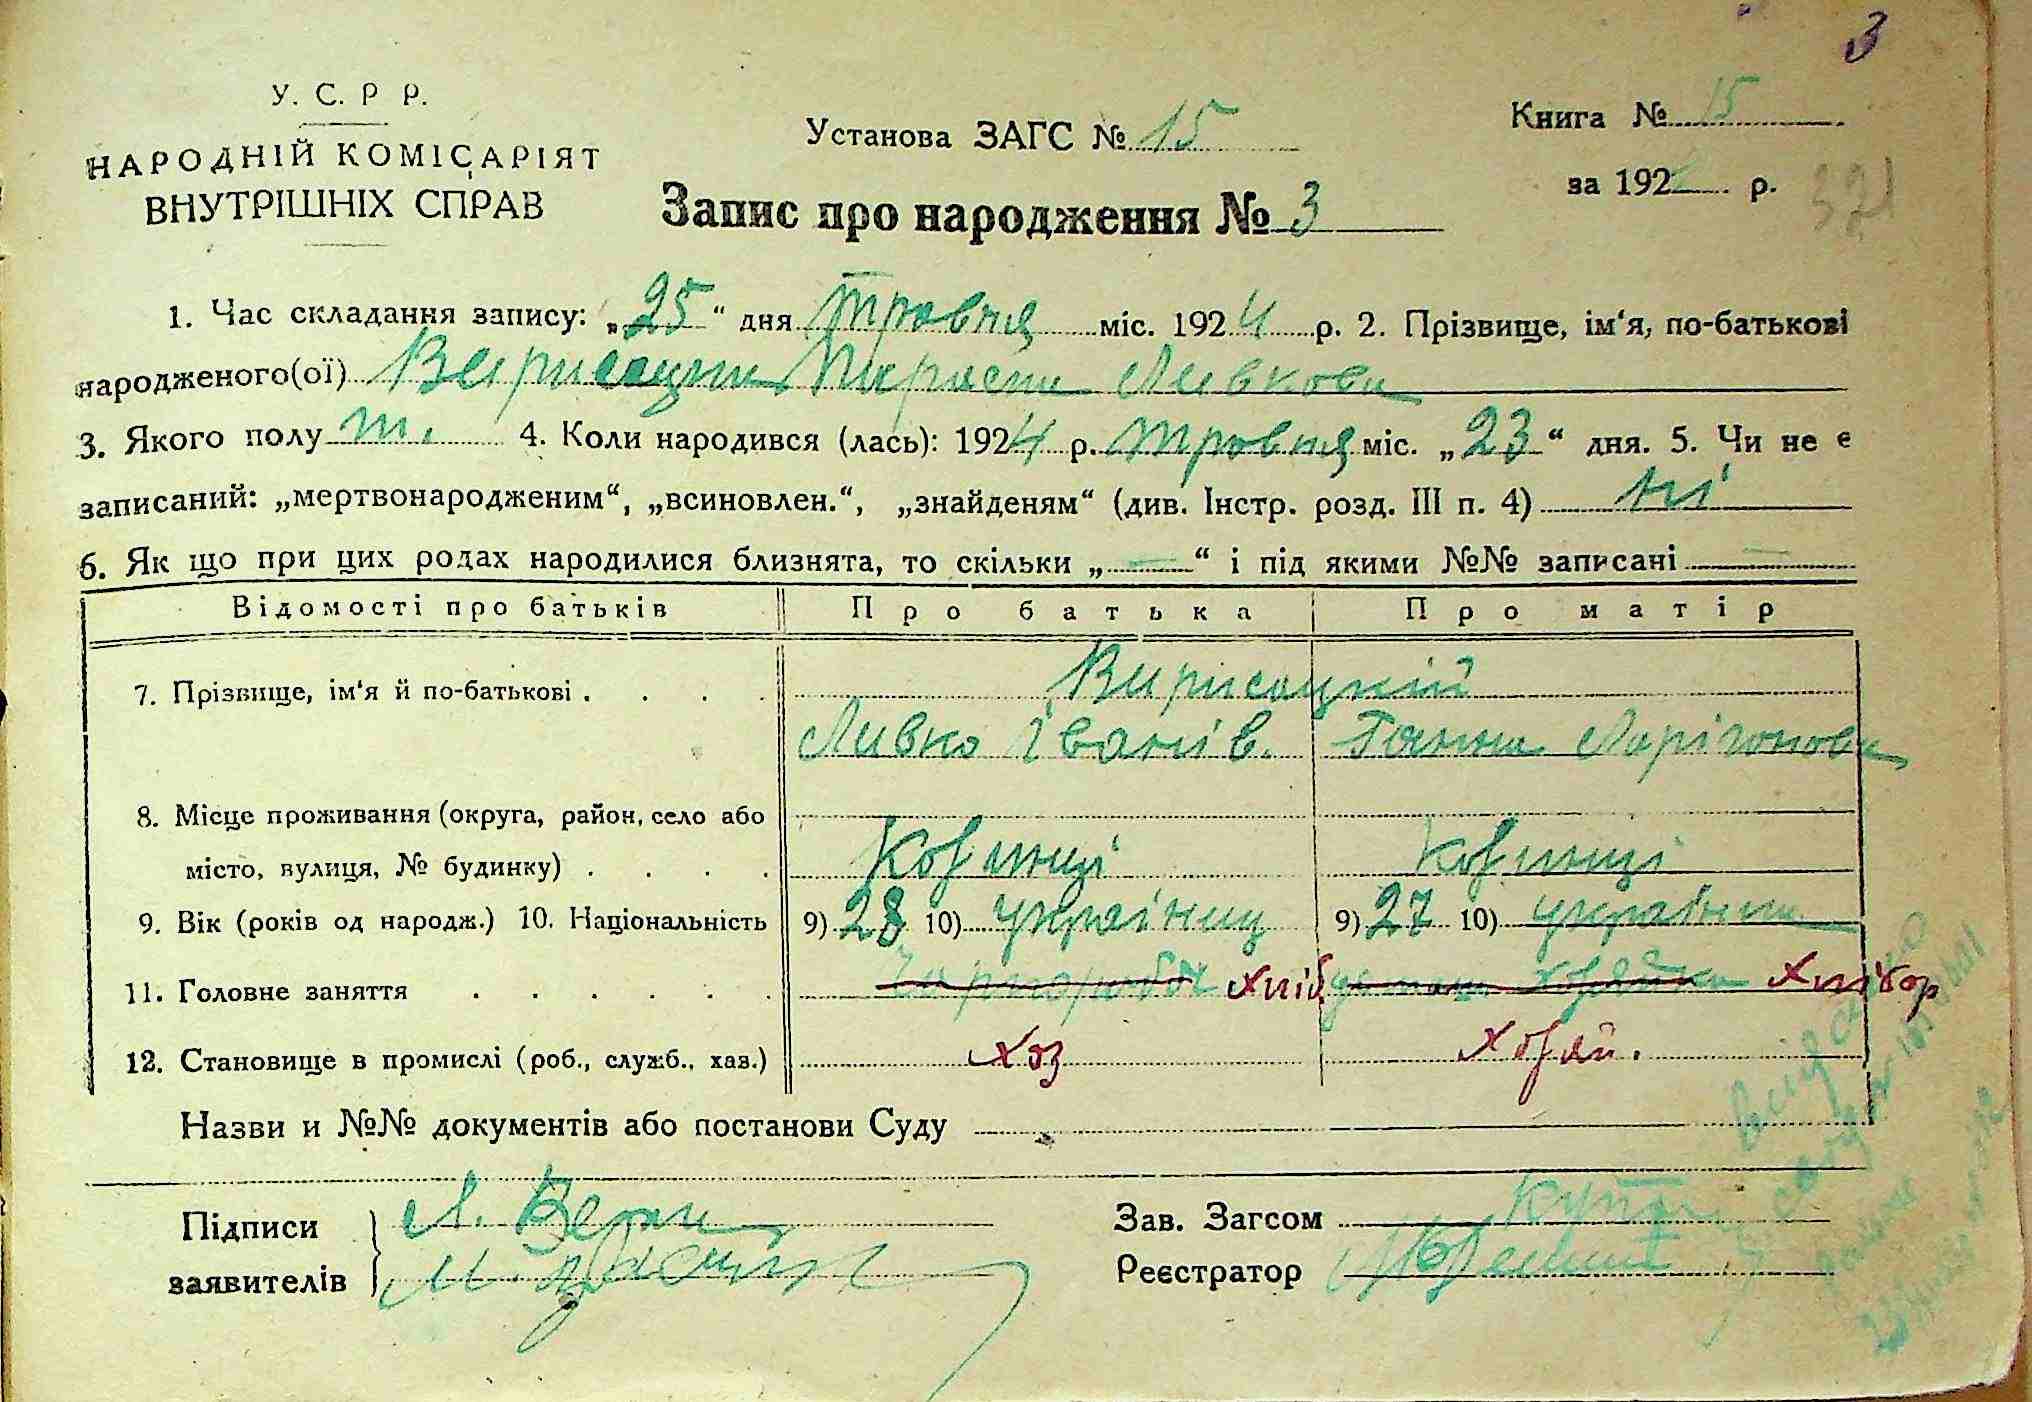 3
У. С. Р Р.
НАРОДНІЙ КОМІСАРІЯТ
ВНУТРІШНІХ СПРАВ
Установа ЗАГС № 15
Книга № 15
за 192 р.
321
Запис про народження № 3
1. Час складання запису: „25“ дня травня міс. 1924 р. 2. Прізвище, ім‘я, по-батькові
народженого(ої) Левкова
3. Якого полу 4. Коли народився (лась): 1924 р. травня міс. „23“ дня. 5. Чи не є
записаний: „мертвонародженим“, „всиновлен.“, „знайденям“ (див. Інстр. розд. III п. 4) ні
6. Як що при цих родах народилися близнята, то скільки „—“ і під якими №№ записані —
Відомості про батьків Про батька Про матір
7. Прізвище, ім‘я й по-батькові . . . . Вирисоцкій
Левко Іванів. Ганна Ларіонова
8. Місце проживання (округа, район, село або
місто, вулиця, № будинку) . . . . Козлинці Козлинці
9. Вік (років од народж.) 10. Національність 9) 28 10) українец 9) 27 10) українка
11. Головне заняття . . . . . . чорнороб хліб хозяйка хлібор
12. Становище в промислі (роб., служб., хаз.) хоз хозяй.
Назви и №№ документів або постанови Суду
Підписи Л. Зав. Загсом
заявителів Реєстратор